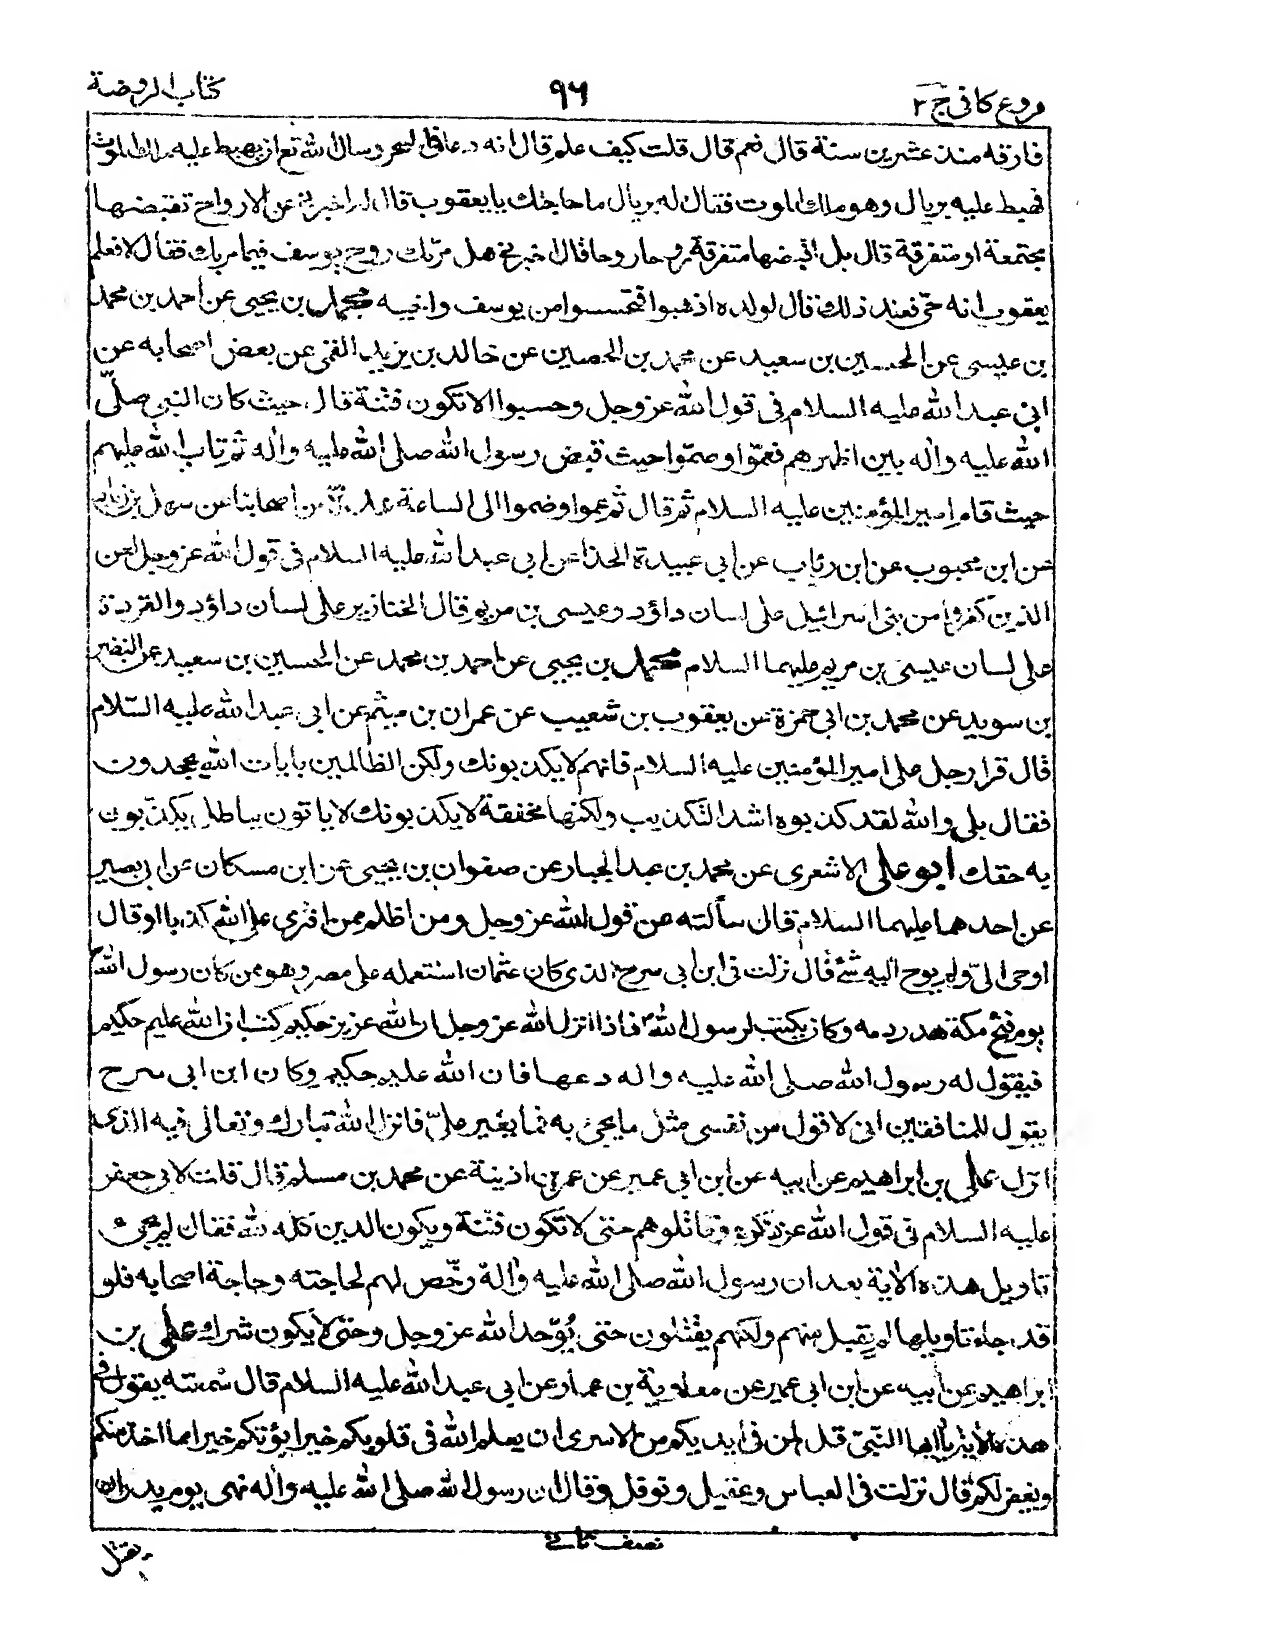 فروع كافی ج ۲
۹۶
كتاب الروضة
فارقه منذ عشرين سنة قال نعم قال قلت كيف علم قال انه دعا فی السحر وسال الله تع ان يهبط عليه ملك الموت
فهبط عليه بريال وهو ملك الموت فقال له بريال ما حاجتك يا يعقوب قال اخبرنی عن الارواح تقبضها
مجتمعة او متفرقة قال بل اقبضها متفرقة روحا روحا قال اخبرنی هل مرّ بك روح يوسف فيما مر بك فقال لا فعلم
يعقوب انه حیّ فعند ذلك قال لولده اذهبوا فتحسسوا من يوسف واخيه محمد بن يحيی عن احمد بن محمد
بن عيسی عن الحسين بن سعيد عن محمد بن الحصين عن خالد بن يزيد القمی عن بعض اصحابه عن
ابی عبد الله عليه السلام فی قول الله عز وجل وحسبوا الا تكون فتنة قال حيث كان النبی صلّی
الله عليه واله بين اظهرهم فعمّوا وصمّوا حيث قبض رسول الله صلی الله عليه واله ثم تاب الله عليهم
حيث قام امير المؤمنين عليه السلام ثم قال ثم عموا وصموا الی الساعة عدة من اصحابنا عن سهل بن زياد
عن ابن محبوب عن ابن رئاب عن ابی عبيدة الحذا عن ابی عبد الله عليه السلام فی قول الله عز وجل لعن
الذين كفروا من بنی اسرائيل علی لسان داؤد وعيسی بن مريم قال الخنازير علی لسان داؤد والقردة
علی لسان عيسی بن مريم عليهما السلام محمد بن يحيی عن احمد بن محمد عن الحسين بن سعيد عن النضر
بن سويد عن محمد بن ابی حمزة عن يعقوب بن شعيب عن عمران بن ميثم عن ابی عبد الله عليه السّلام
قال قرا رجل علی امير المؤمنين عليه السلام فانهم لا يكذبونك ولكن الظالمين بايات الله يجحدون
فقال بلی والله لقد كذبوه اشد التكذيب ولكنها مخففة لا يكذبونك لا ياتون بباطل يكذّبون
به حقك ابو علی الاشعری عن محمد بن عبد الجبار عن صفوان بن يحيی عن ابن مسكان عن ابی بصير
عن احدهما عليهما السلام قال سألته عن قول الله عز وجل ومن اظلم ممن افتری علی الله كذبا او قال
اوحی الیّ ولم يوح اليه شئ قال نزلت فی ابن ابی سرح الذی كان عثمان استعمله علی مصر وهو ممن كان رسول الله
يوم فتح مكة هدر دمه وكان يكتب لرسول الله فاذا انزل الله عز وجل ان الله عزيز حكيم كتب ان الله عليم حكيم
فيقول له رسول الله صلی الله عليه واله دعها فان الله عليم حكيم وكان ابن ابی سرح
يقول للمنافقين انی لاقول من نفسی مثل ما يجئ به فما يغير علیّ فانزل الله تبارك وتعالی فيه الذی
انزل علی بن ابراهيم عن ابيه عن ابن ابی عمير عن عمر بن اذينة عن محمد بن مسلم قال قلت لابی جعفر
عليه السلام فی قول الله عز ذكره وقاتلوهم حتی لا تكون فتنة ويكون الدين كله لله فقال لم يجئ
تاويل هذه الاية بعد ان رسول الله صلی الله عليه واله رخّص لهم لحاجته وحاجة اصحابه فلو
قد جاء تاويلها لم يقبل منهم ولكنهم يقتلون حتی يُوَحّد الله عز وجل وحتی لا يكون شرك علی بن
ابراهيم عن ابيه عن ابن ابی عمير عن معاوية بن عمار عن ابی عبد الله عليه السلام قال سمعته يقول فی
هذه الاية يا ايها النّبیّ قل لمن فی ايديكم من الاسری ان يعلم الله فی قلوبكم خيرا يؤتكم خيرا مما اخذ منكم
ويغفر لكم قال نزلت فی العباس وعقيل ونوفل وقال ان رسول الله صلی الله عليه واله نهی يوم بدر ان
نصف ثانی
يقتل